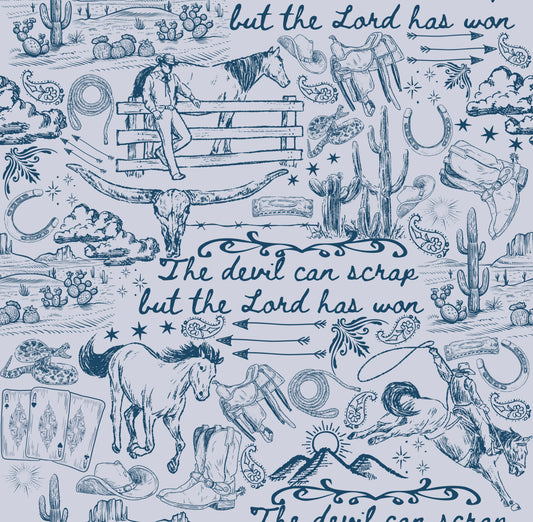 but the Lord has won
The devil can scrap
but the Lord has won
The devil can scrap